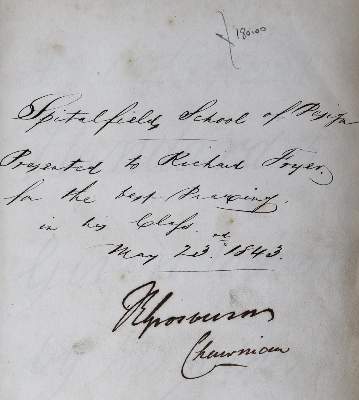 180.00
Spitalfields School of Design
Presented to Richard Foyer,
for the best Drawing,
in his Class.
May 23rd. 1843.
R Grosvenor
Chairman